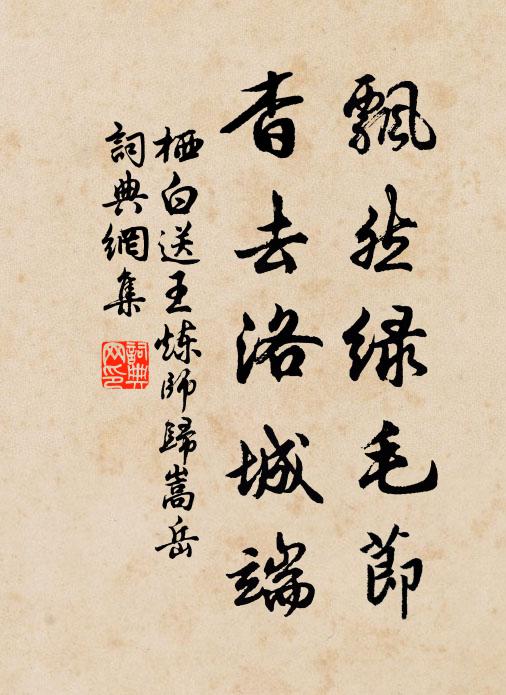 飄然绿毛節
杳去洛城端
栖白送王炼师歸嵩岳
詞典網集
詞典网印